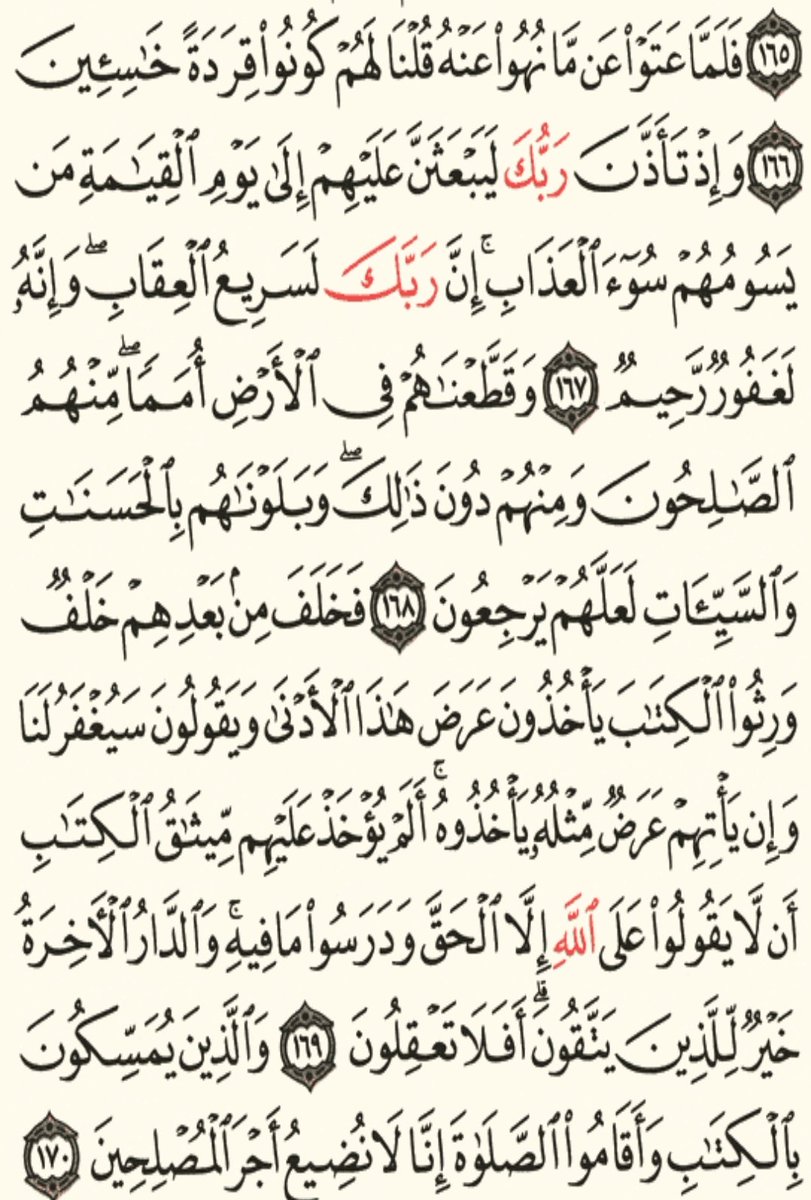 ۝١٦٥ فَلَمَّا عَتَوْا۟ عَن مَّا نُهُوا۟ عَنْهُ قُلْنَا لَهُمْ كُونُوا۟ قِرَدَةً خَـٰسِـِٔينَ
۝١٦٦ وَإِذْ تَأَذَّنَ رَبُّكَ لَيَبْعَثَنَّ عَلَيْهِمْ إِلَىٰ يَوْمِ ٱلْقِيَـٰمَةِ مَن
يَسُومُهُمْ سُوٓءَ ٱلْعَذَابِ ۚ إِنَّ رَبَّكَ لَسَرِيعُ ٱلْعِقَابِ ۖ وَإِنَّهُۥ
لَغَفُورٌ رَّحِيمٌ ۝١٦٧ وَقَطَّعْنَـٰهُمْ فِى ٱلْأَرْضِ أُمَمًا ۖ مِّنْهُمُ
ٱلصَّـٰلِحُونَ وَمِنْهُمْ دُونَ ذَٰلِكَ ۖ وَبَلَوْنَـٰهُم بِٱلْحَسَنَـٰتِ
وَٱلسَّيِّـَٔاتِ لَعَلَّهُمْ يَرْجِعُونَ ۝١٦٨ فَخَلَفَ مِنۢ بَعْدِهِمْ خَلْفٌ
وَرِثُوا۟ ٱلْكِتَـٰبَ يَأْخُذُونَ عَرَضَ هَـٰذَا ٱلْأَدْنَىٰ وَيَقُولُونَ سَيُغْفَرُ لَنَا
وَإِن يَأْتِهِمْ عَرَضٌ مِّثْلُهُۥ يَأْخُذُوهُ ۚ أَلَمْ يُؤْخَذْ عَلَيْهِم مِّيثَـٰقُ ٱلْكِتَـٰبِ
أَن لَّا يَقُولُوا۟ عَلَى ٱللَّهِ إِلَّا ٱلْحَقَّ وَدَرَسُوا۟ مَا فِيهِ ۗ وَٱلدَّارُ ٱلْـَٔاخِرَةُ
خَيْرٌ لِّلَّذِينَ يَتَّقُونَ ۗ أَفَلَا تَعْقِلُونَ ۝١٦٩ وَٱلَّذِينَ يُمَسِّكُونَ
بِٱلْكِتَـٰبِ وَأَقَامُوا۟ ٱلصَّلَوٰةَ إِنَّا لَا نُضِيعُ أَجْرَ ٱلْمُصْلِحِينَ ۝١٧٠